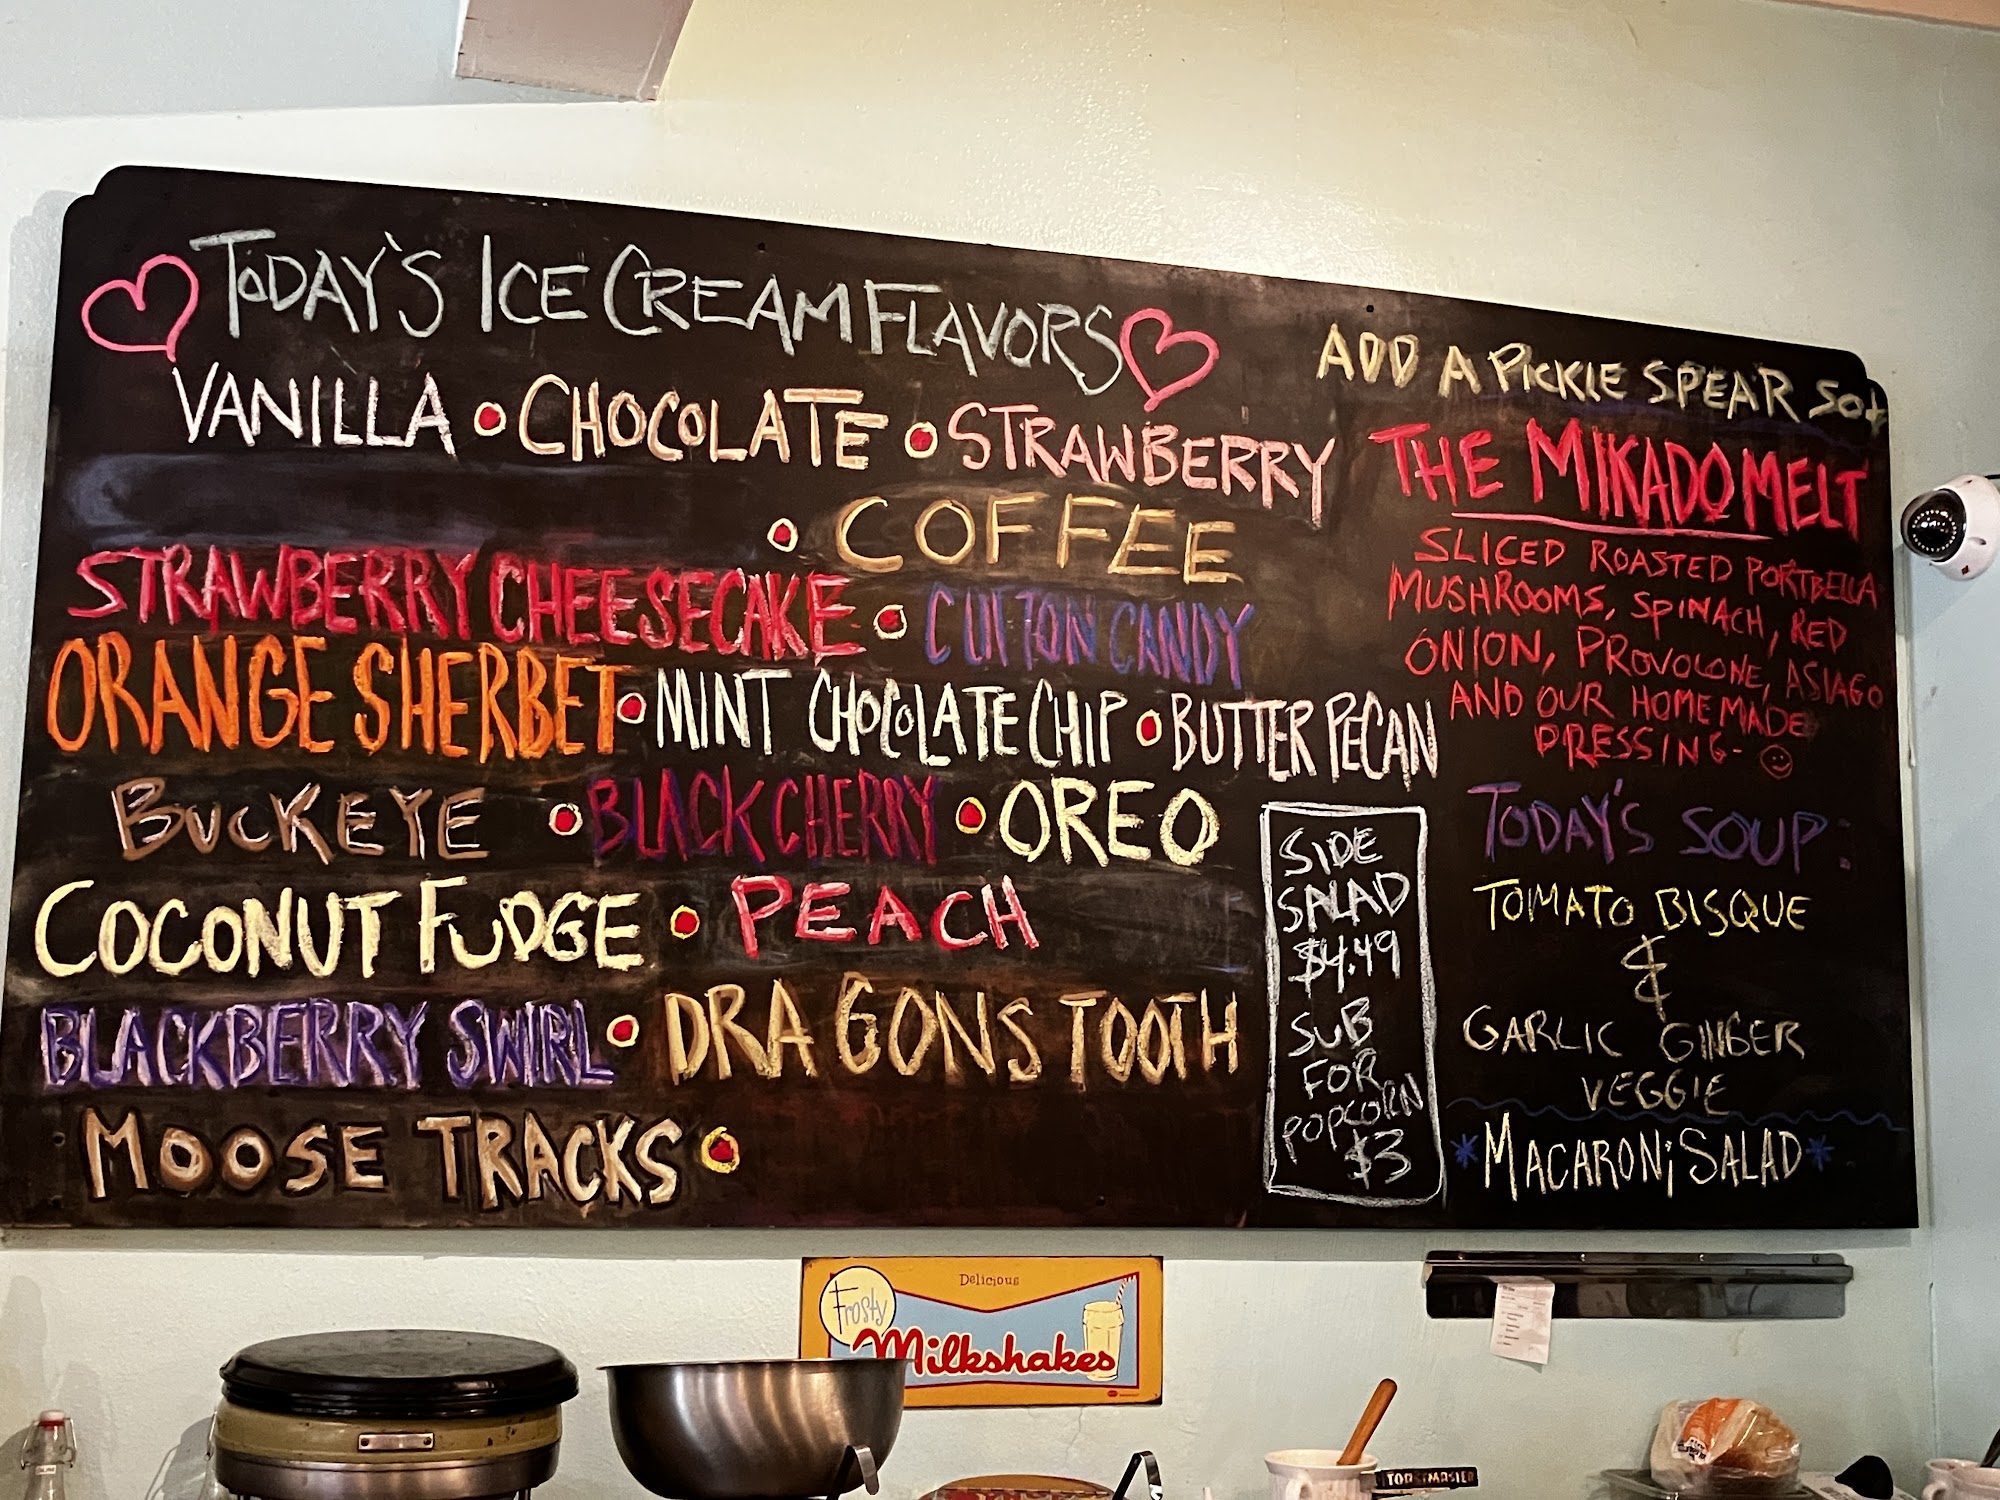 TODAY'S ICE CREAM FLAVORS
VANILLA • CHOCOLATE • STRAWBERRY
• COFFEE
STRAWBERRY CHEESECAKE • COTTON CANDY
ORANGE SHERBET • MINT CHOCOLATE CHIP • BUTTER PECAN
BUCKEYE • BLACK CHERRY • OREO
COCONUT FUDGE • PEACH
BLACKBERRY SWIRL • DRAGONS TOOTH
MOOSE TRACKS •
ADD A PICKLE SPEAR 50¢
THE MIKADO MELT
SLICED ROASTED PORTBELLA
MUSHROOMS, SPINACH, RED
ONION, PROVOLONE, ASIAGO
AND OUR HOMEMADE
DRESSING-
SIDE
SALAD
$4.49
SUB
FOR
POPCORN
$3
TODAY'S SOUP:
TOMATO BISQUE
&
GARLIC GINGER
VEGGIE
*MACARONI SALAD*
Delicious
Frosty
Milkshakes
TOASTMASTER